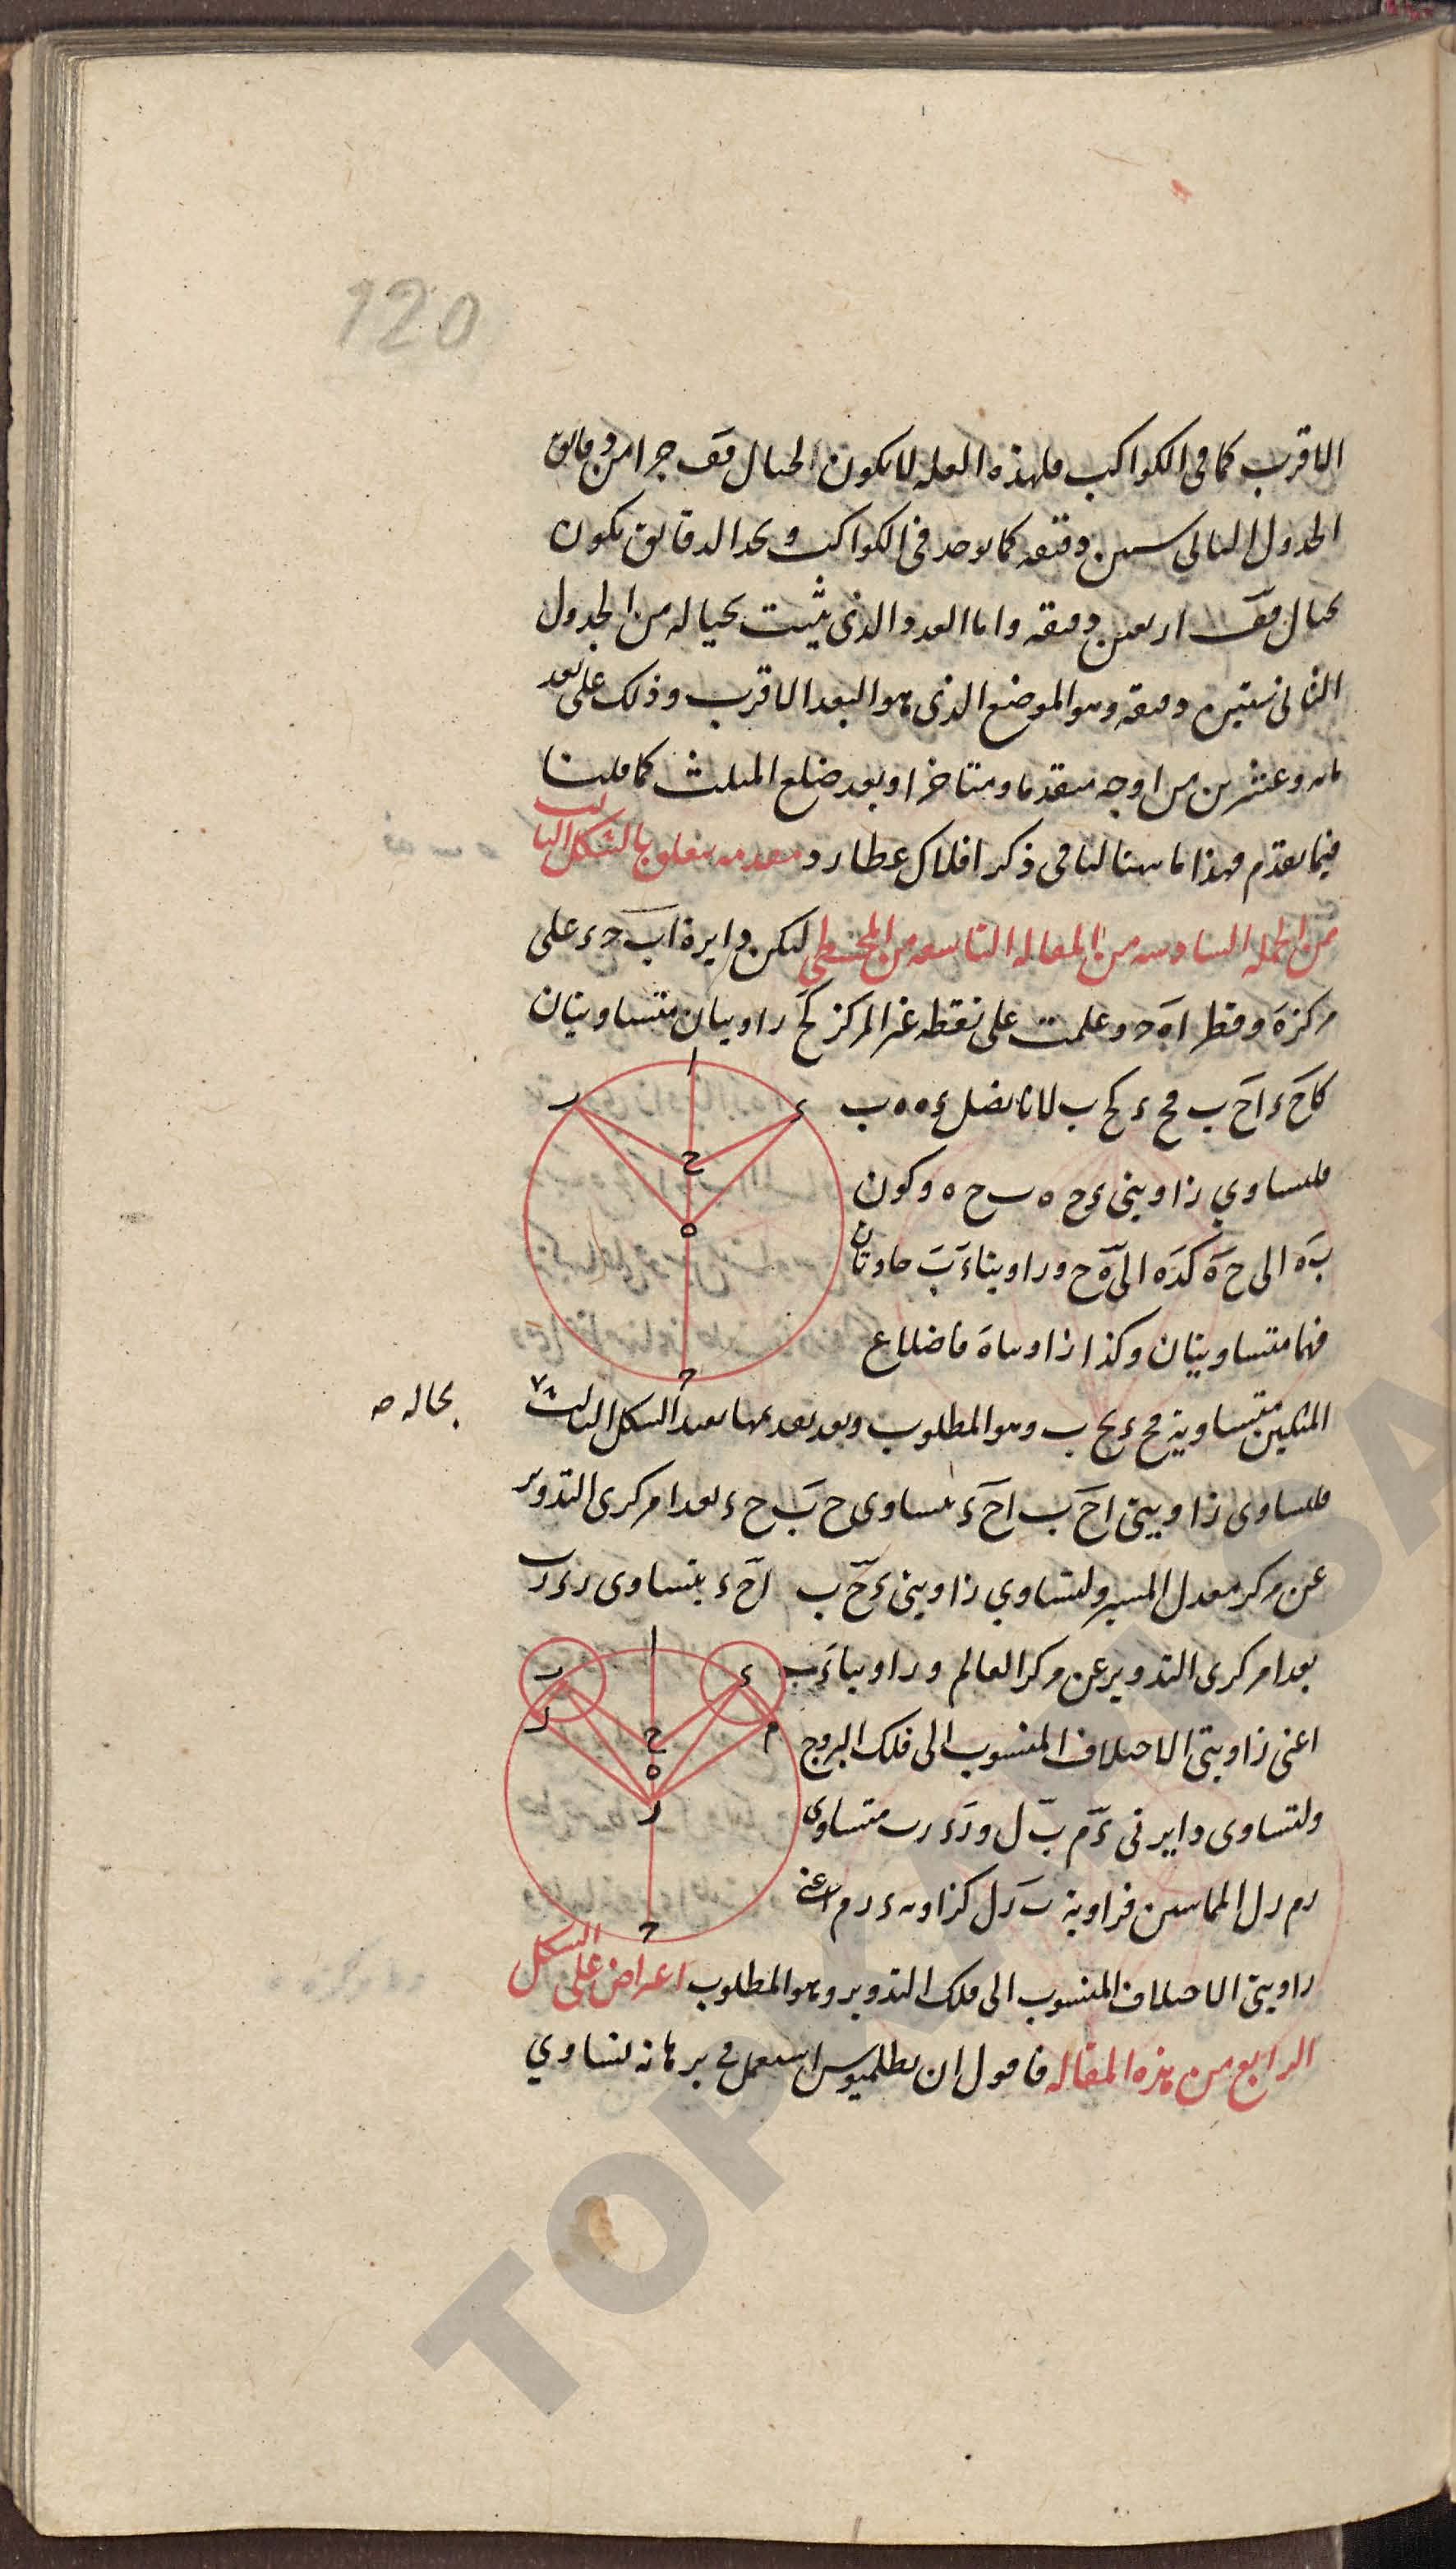 120
الاقرب كما فى الكواكب فلهذه العله لا يكون الحال قف جرا من دقايق
الجدول الثانى ستين دقيقه كما يوجد فى الكواكب وبحد الدقايق يكون
بحيال قف اربعين دقيقه واما العدد الذى يثبت بحياله من الجدول
الثانى ستين دقيقه وهو الموضع الذى هو البعد الاقرب وذلك على بعد
مايه وعشرين من اوجه متقدما ومتاخرا وبعد ضلع المثلث كما قلنا
فيما تقدم فهذا ما سنا لنا فى ذكر افلاك عطارد مقدمه يتعلق بالشكل الثالث
من الجمله السادسه من المقاله التاسعه من المجسطى ليكن دايرة اب ج ء على
مركز ه وقطر ا ه ج وعلمت على نقطه غير المركز كح زاويتان متساويتان
كاح ء اح ب فح ء كح ب لانا نصل ء ه ه ب
فلتساوي زاويتى ء ح ه ب ح ه وكون
ب ه الى ح ه كد ه الى ه ح وزاويتا ء ب حادتان
فهما متساويتان وكذا زاويتا ه فاضلاع
المثلثين متساوية فح ء كح ب وهو المطلوب وبعد تقديمها نعيد الشكل الثالث
بحاله ص
فلتساوى زاويتى اح ب اح ء يتساوى ح ب ح ء بعدا مركزى التدوير
عن مركز معدل المسير ولتساوي زاويتى ء ح ب اح ء يتساوى ر ء ر ب
بعدا مركزى التدوير عن مركز العالم وزاويتا ء ب
اعنى زاويتى الاختلاف المنسوب الى فلك البروج
ولتساوى دايرتى ء م ب ل و ر ء ر ب متساوى
ر م ر ل المماسين فزاوية ب ر ل كزاويه ء ر م اعنى
زاويتى الاختلاف المنسوب الى فلك التدوير وهو المطلوب اعتراض على الشكل
الرابع من هذه المقاله فاقول ان بطلميوس استعمل فى برهانه تساوي
ا
ء
ح
ه
ا
ء
ح
ه
ر
م
TOPKAPI SA